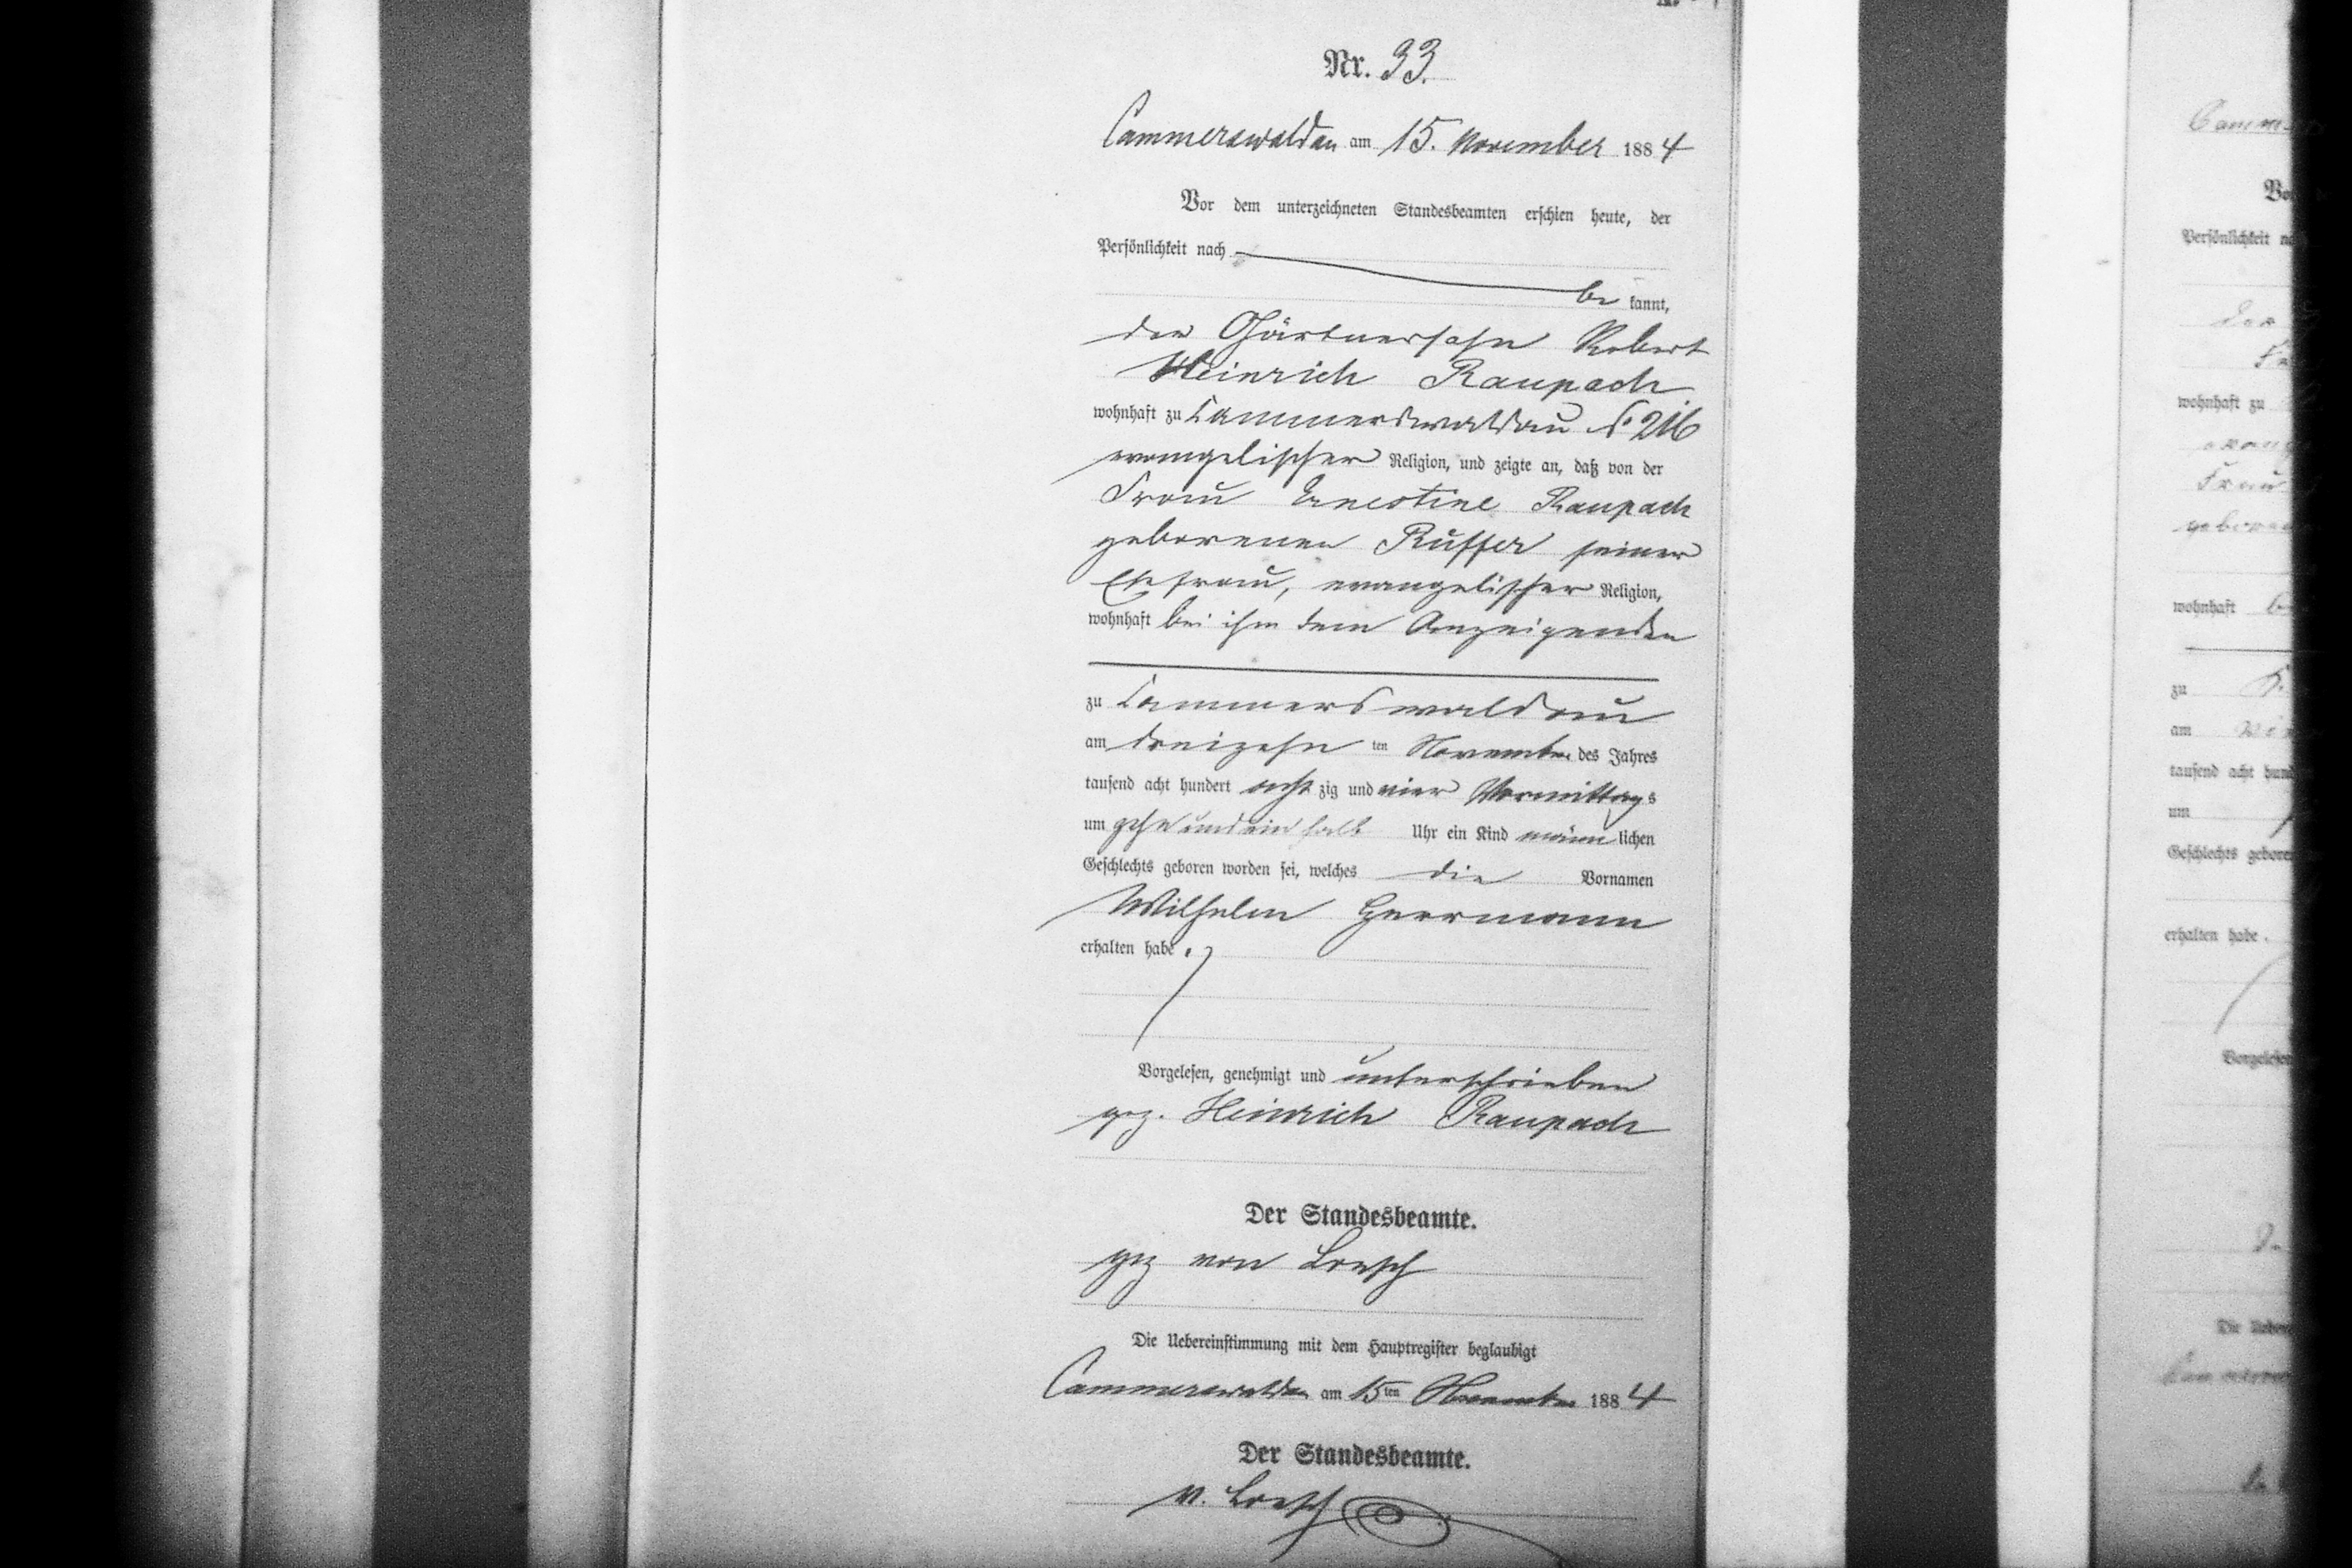 Nr. 33.
Cammerswaldau am 15. November 1884
Vor dem unterzeichneten Standesbeamten erschien heute, der
Persönlichkeit nach
be kannt,
der Gärtnersohn Robert
Heinrich Raupach
wohnhaft zu Cammerswaldau N° 216
evangelischer Religion, und zeigte an, daß von der
Frau Ernestine Raupach
geborenen Rüffer seiner
Ehefrau, evangelischer Religion,
wohnhaft bei ihm dem Anzeigenden
zu Cammerswaldau
am dreizehn ten November des Jahres
tausend acht hundert acht zig und vier Vormittags
um zehn und ein halb Uhr ein Kind männ lichen
Geschlechts geboren worden sei, welches die Vornamen
Wilhelm Herrmann
erhalten habe.
Vorgelesen, genehmigt und unterschrieben
gez. Heinrich Raupach
Der Standesbeamte.
gez von Loesch
Die Uebereinstimmung mit dem Hauptregister beglaubigt
Cammerswaldau am 15ten November 1884
Der Standesbeamte.
v. Loesch
Persönlichkeit
wohnhaft zu
Frau
wohnhaft
zu
am
tausend acht
um
Geschlechts
erhalten habe.
Die